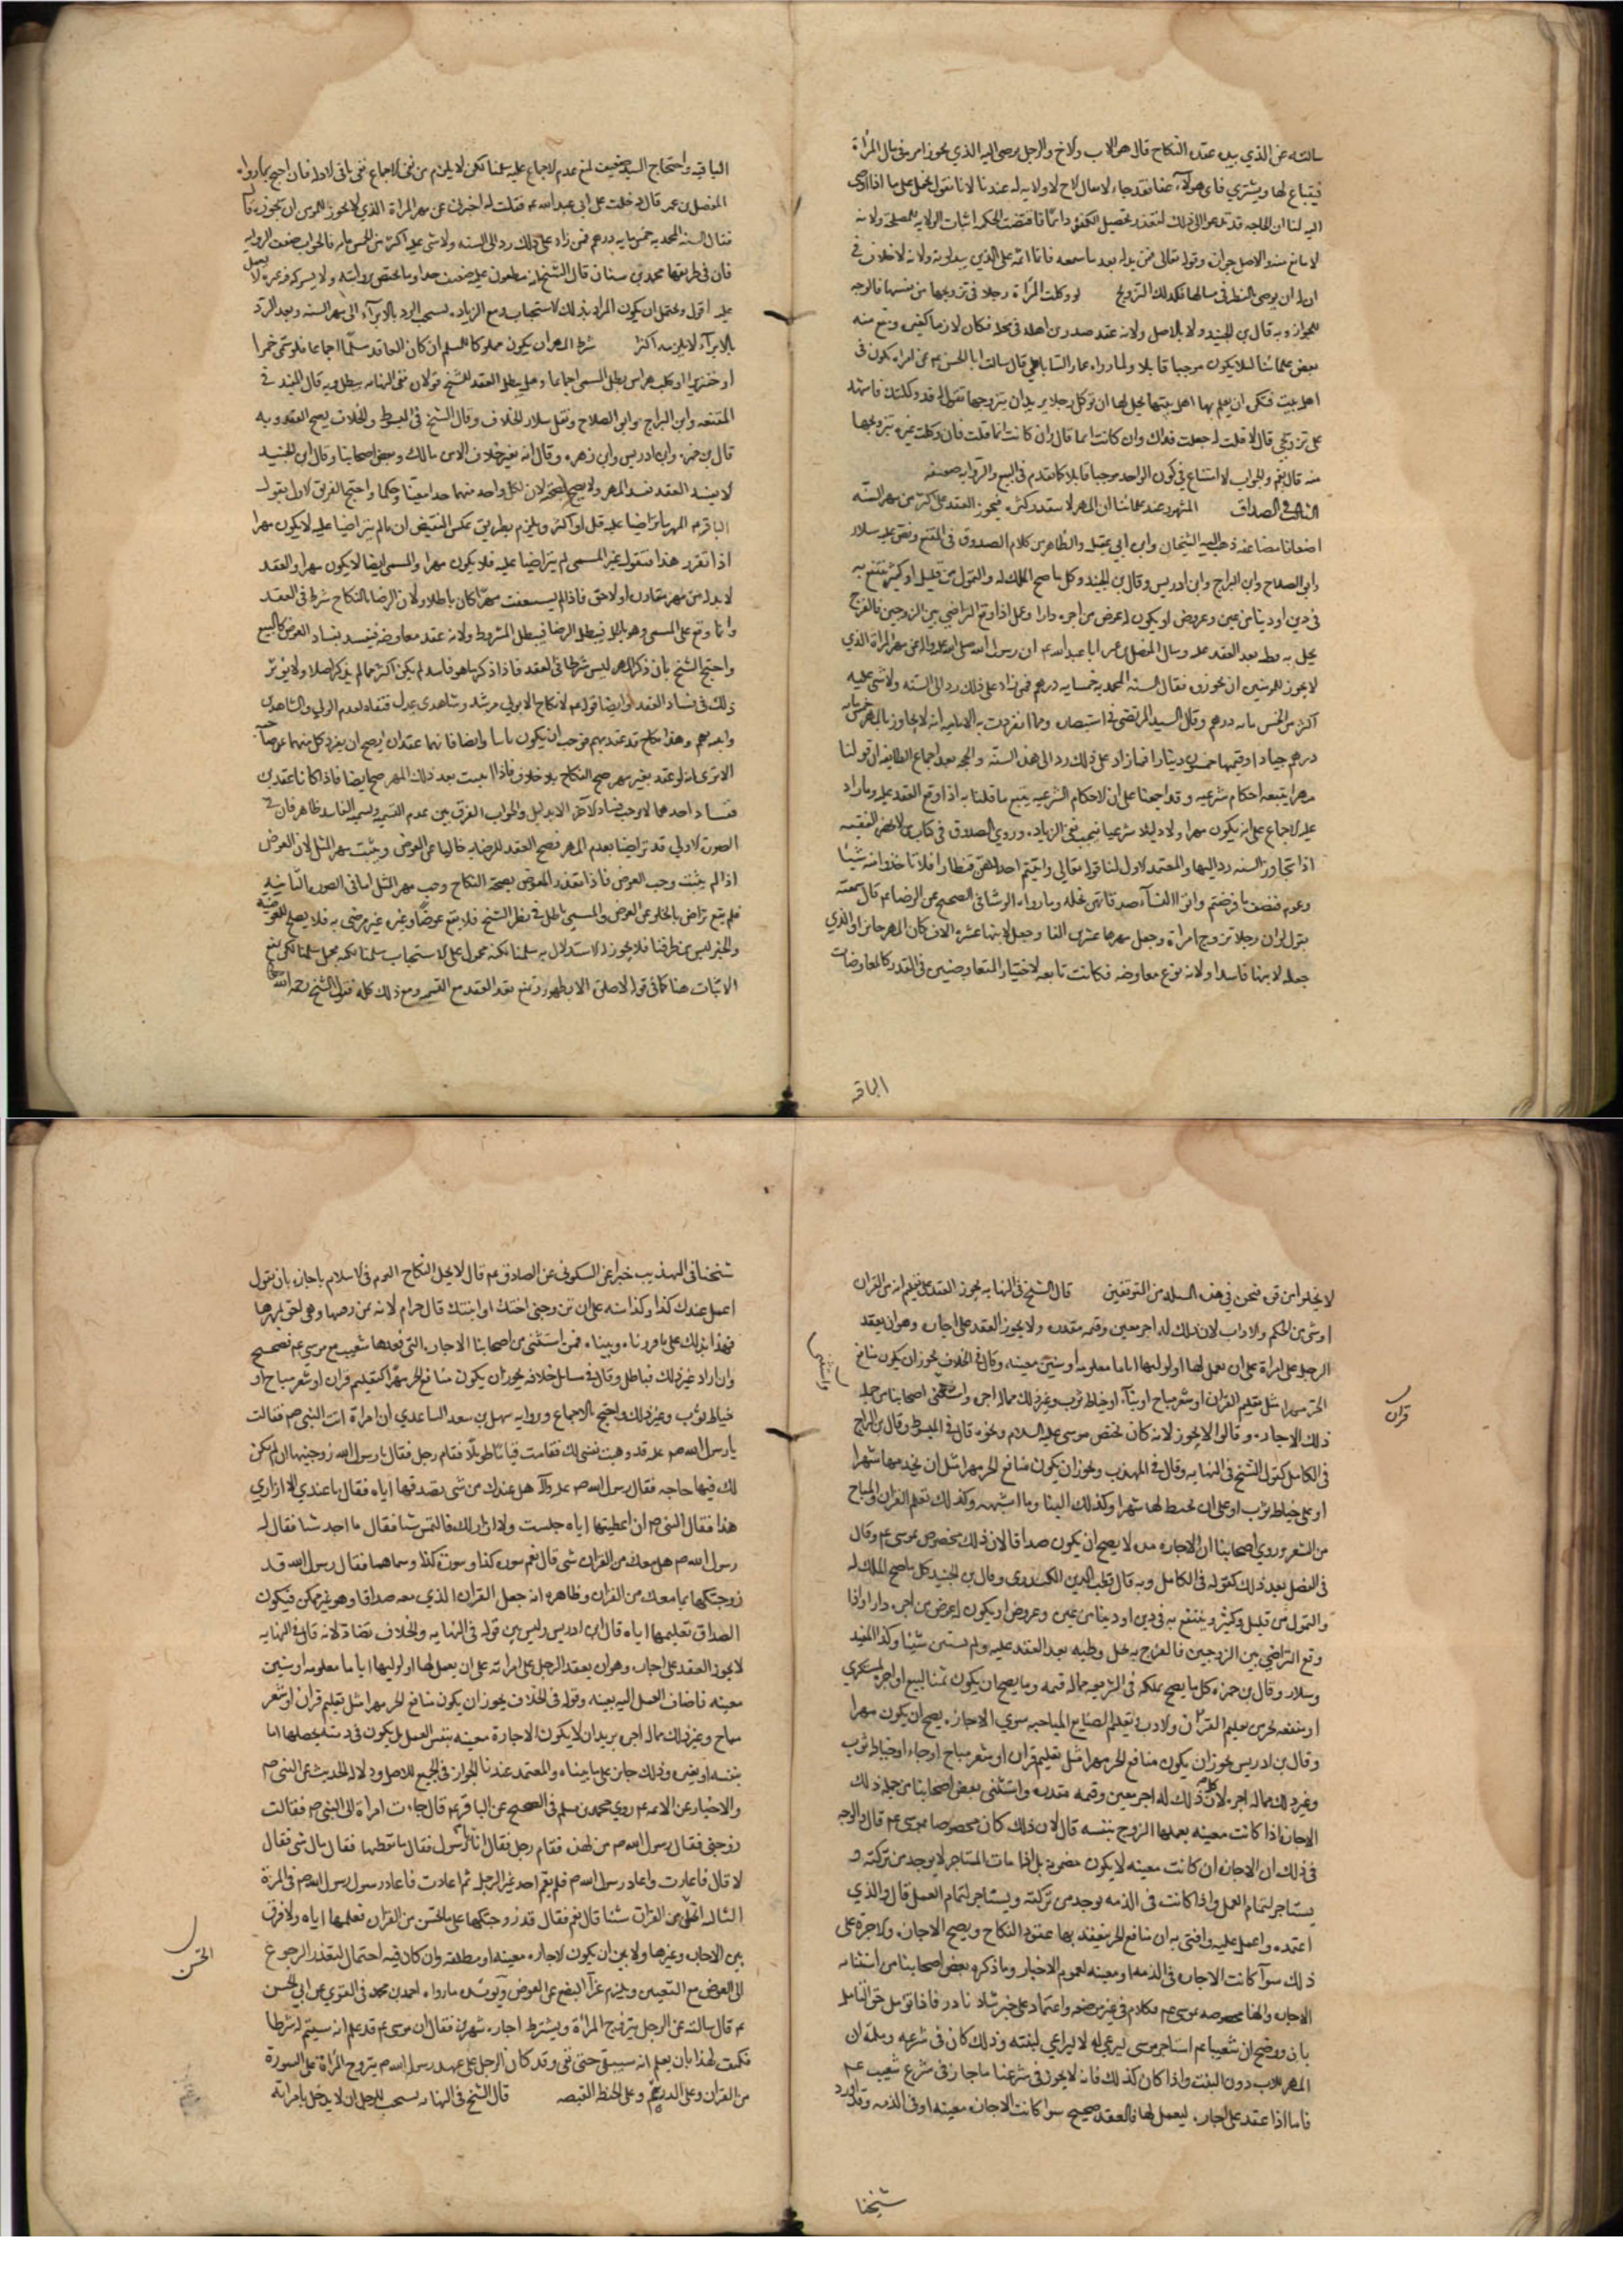 سالته عن الذي بيده عقدة النكاح قال هو الاب والاخ والرجل يوصى اليه الذي يجوز امره في مال المرأة
فيبتاع لها ويشتري فاي هولاء عفا فقد جاز لا يقال الاخ لا ولاية له عندنا لانا نقول يحمل على ما اذا اوصى
اليه لنا ان الحاجة قد تدعوا الى ذلك لتعذر تحصيل الكفو دائما فاقتضت الحكمة اثبات الولاية للمصلحة ولانه
لا مانع منه والاصل جوازه وقوله تعالى فمن بدله بعد ما سمعه فانما اثمه على الذين يبدلونه ولانه لا خلاف في
ان له ان يوصى بالنظر في مالها فكذلك التزويج لو وكلت المرأة رجلا في تزويجها من نفسها فالوجه
الجواز وبه قال بن الجنيد ولا بالاصل ولانه عقد صدر من اهله في محله فكان لازما كغيره ومنع منه
بعض علمائنا لئلا يكون موجبا قابلا ولما رواه عمار الساباطي قال سالت ابا الحسن عم عن امراة تكون في
اهل بيت فتكره ان يعلم بها اهل بيتها يحل لها ان توكل رجلا يريد ان يتزوجها تقول له قد وكلتك فاشهد
على تزويجي قال لا قلت له جعلت فداك وان كانت ايما قال وان كانت ايما قلت فان وكلت غيره بتزويجها
منه قال نعم والجواب لا امتناع في كون الواحد موجبا قابلا كما تقدم في البيع والرواية ضعيفة
الثالث في الصداق المشهور عند علمائنا ان المهر لا يتقدر كثرة فيجوز العقد على اكثر من مهر السنة
اضعافا مضاعفة ذهب اليه الشيخان وابن ابي عقيل والظاهر من كلام الصدوق في المقنع ونص عليه سلار
وابو الصلاح وابن البراج وابن ادريس وقال بن الجنيد وكل ما صح الملك له والتمول من قليل او كثير ينتفع به
في دين او دنيا من عين وعروض او يكون له عوض من اجرة دار او عمل اذا وقع التراضي بين الزوجين فالفرج
يحل به وطئه بعد العقد عليه وسال المفضل بن عمر ابا عبد الله عم ان رسول الله صلى الله عليه واله عن مهر المرأة الذي
لا يجوز للمؤمنين ان يجوزوه فقال السنة المحمدية خمسمايه درهم فمن زاد على ذلك رد الى السنه ولا شي عليه
اكثر من الخمس مايه درهم وقال السيد المرتضى في انتصاره ومما انفردت به الامامية انه لا يجاوز بالمهر خمس مايه
درهم جياد او قيمتها خمسون دينارا فما زاد على ذلك رد الى هذه السنة والحجة بعد اجماع الطايفة ان قولنا
مهر يتبعه احكام شرعية وقد اجمعنا على ان الاحكام الشرعية يتبع ما قلنا به اذا وقع العقد عليه وما زاد
عليه لا اجماع على انه يكون مهرا ولا دليل شرعيا فيجب نفي الزيادة وروى الصدوق في كتاب من لا يحضره الفقيه
اذا تجاوز السنه رد اليها والمعتمد الاول لنا قوله تعالى واتيتم احداهن قنطارا فلا تاخذوا منه شيئا
وعموم فنصف ما فرضتم واتوا النساء صدقاتهن نحلة وما رواه الوشا في الصحيح عن الرضا عم قال سمعته
يقول لو ان رجلا تزوج امراة وجعل مهرها عشرين الفا وجعل لابيها عشرة الاف كان المهر جائزا والذي
جعله لابيها فاسدا ولانه نوع معاوضه فكانت تابعه لاختيار المتعاوضين في القدر كالمعاوضات
الباقيه
الباقيه واحتجاج السيد ضعيف لمنع عدم الاجماع عليه سلمنا لكن لا يلزم من نفي الاجماع نفي باقي الادلة فان احتج بما رواه
المفضل بن عمر قال دخلت على ابي عبد الله عم فقلت له اخبرني عن مهر المرأة الذي لا يجوز للمومن ان يجوزه قال
فقال السنه المحمديه خمس مايه درهم فمن زاد على ذلك رد الى السنه ولا شي عليه اكثر من الخمس مايه فالجواب ضعف الرواية
فان في طريقها محمد بن سنان قال الشيخ انه مطعون عليه ضعيف جدا وما يختص بروايته ولا يشركه فيه غيره لا يعمل
عليه اقول ويحتمل ان يكون المراد بذلك الاستحباب ومع الزيادة يستحب الرد بالابراء الى مهر السنه وبعد الرد
بالابراء لا يلزمه اكثر شرط المهر ان يكون مملوكا للمسلم ان كان العاقد مسلما اجماعا فلو سمى خمرا
او خنزيرا او كلب هراس بطل المسمى اجماعا وهل يبطل العقد للشيخ قولان ففي النهاية يبطل وبه قال المفيد في
المقنعه وابن البراج وابو الصلاح ونقل سلار الخلاف وقال الشيخ في المبسوط والخلاف يصح العقد وبه
قال بن حمزه وابن ادريس وابن زهره وقال انه بغير خلاف الا من مالك وبعض اصحابنا وقال ابن الجنيد
لا يفسد العقد لفساد المهر ولا يصح لصحته لان لكل واحد منهما حدا معينا وحكما واحتج الفريق الاول بقول
الباقر عم المهر ما تراضيا عليه قل او اكثر ويلزم بطريق عكس النقيض ان ما لم يتراضيا عليه لا يكون مهرا
اذا تقرر هذا فنقول غير المسمى لم يتراضيا عليه فلا يكون مهرا والمسمى ايضا لا يكون مهرا والعقد
لا بد له من مهر مقارن او لاحق فاذا لم يستعقب مهرا كان باطلا ولان الرضا بالنكاح شرط في العقد
وانما وقع على المسمى وهو باطل فيبطل الرضا فيبطل المشروط ولانه عقد معاوضه فيفسد بفساد العوض كالبيع
واحتج الشيخ بان ذكر المهر ليس شرطا في العقد فاذا ذكر ما هو فاسد لم يكن اكثر مما لم يذكر اصلا ولا يوثر
ذلك في فساد العقد وايضا قوله عم لا نكاح الا بولي مرشد وشاهدي عدل فنفاه لعدم الولي والشاهدين
الاترى انه لو عقد بغير مهر صح النكاح بلا خلاف فاذا ثبت بعد ذلك المهر صح ايضا فاذا كانا عقدين
ففساد احدهما لا يوجب فساد الاخر الا بدليل والجواب الفرق بين عدم التسمية وتسمية الفاسد ظاهر فان في
الصورة الاولى قد تراضيا بعدم المهر فصح العقد للرضا به خاليا عن العوض ويثبت مهر المثل لان العوض
اذا لم يثبت وجب العوض فاذا تعذر المعوض بصحة النكاح وجب مهر المثل اما في الصورة الثانيه
فلم يقع تراض بالخلو عن العوض والمسمى باطل في نظر الشرع فلا يقع عوضا وغيره غير مرضي به فلا يصلح للعوضية
والخبر ليس من طرقنا فلا يجوز له الاستدلال به سلمنا لكنه محمول على الاستحباب سلمنا لكنه مجمل سلمنا لكن يمنع
الاثبات هنا كما في قوله لا صلوة الا بطهور ويمنع تعدد العقد مع التسميه ومع ذلك كله فقول الشيخ رحمه الله
لا يخلو من قوة فنحن في هذه المسئلة من المتوقفين قال الشيخ في النهايه يجوز العقد على تعليم اية من القران
او شي من الحكم والاداب لان ذلك له اجر معين وقيمه مقدره ولا يجوز العقد على اجارة وهو ان يعقد
الرجل على امراة على ان يعمل لها او لوليها اياما معلومه او سنين معينه وقال في الخلاف يجوز ان يكون منافع
الحر مهرا مثل تعليم القران او شعر مباح او بناء او خياطة ثوب وغير ذلك مما له اجره واستثنى اصحابنا من جمله
ذلك الاجارة وقالوا لا يجوز لانه كان يختص موسى عليه السلام ونحوه قال في المبسوط وقال بن البراج
في الكامل كقول الشيخ في النهايه وقال في المهذب ويجوز ان يكون منافع الحر مهرا مثل ان يخدمها شهرا
او على خياطة ثوب او على ان يخيط لها شهرا وكذلك البنا وما اشبهه وكذلك تعليم القران والمباح
من الشعر وروى اصحابنا ان الاجاره مده لا يصح ان يكون صداقا لان ذلك مخصوص بموسى عم وقال
في الفصل بعد ذلك كقوله في الكامل وبه قال قطب الدين الكيدري وقال بن الجنيد كل ما صح الملك له
والتمول من قليل وكثير وينتفع به في دين او دنيا من عين وعروض او يكون له عوض من اجرة دار او اذا
وقع التراضي بين الزوجين فالفرج به يحل وطيه بعد العقد عليه ولم يستثن شيئا وكذا المفيد
وسلار وقال بن حمزه كل ما يصح تملكه في الشريعه مما له قيمه وما يصح ان يكون ثمنا لمبيع او اجرة لمستكري
او منفعه لحر من تعليم القران والادب وتعليم الصنايع المباحه سوى الاجارة يصح ان يكون مهرا
وقال بن ادريس يجوز ان يكون منافع الحر مهرا مثل تعليم قران او شعر مباح او بناء او خياطة ثوب
وغير ذلك مما له اجرة لان كل ذلك له اجر معين وقيمه مقدره واستثنى بعض اصحابنا من جمله ذلك
الاجارة اذا كانت معينه يعملها الزوج بنفسه قال لان ذلك كان مخصوصا بموسى عم قال والوجه
في ذلك ان الاجارة ان كانت معينه لا يكون مضمونة بل اذا مات المستاجر لا يوجد من تركته و
يستاجر لتمام العمل واذا كانت في الذمه يوخذ من تركته ويستاجر لتمام العمل قال والذي
اعتمده واعمل عليه وافتي به ان منافع الحر ينعقد بها عقود النكاح ويصح الاجارة والاجرة على
ذلك سوآ كانت الاجاره في الذمه او معينه لعموم الاخبار وما ذكره بعض اصحابنا من استثنائه
الاجارة وانها مخصوصه بموسى عم فكلام في غير موضعه واعتماد على خبر شاذ نادر فاذا تومل حق التامل
بان ووضح ان شعيبا عم استاجر موسى ليرعى له لا ليرعى لبنته وذلك كان في شرعه وملته ان
المهر للاب دون البنت واذا كان كذلك فانه لا يجوز في شرعنا ما جاز في شرع شعيب عم
فاما اذا عقد على اجارة ليعمل لها فالعقد صحيح سوا كانت الاجارة معينه او في الذمه وقد اورد
قران
شيخنا
شيخنا في التهذيب خبرا عن السكوني عن الصادق عم قال لا يحل النكاح اليوم في الاسلام باجارة بان يقول
اعمل عندك كذا وكذا سنه على ان تزوجني اختك او ابنتك قال حرام لانه ثمن رقبتها وهي احق بمهرها
فهذا يدلك على ما حررناه وبيناه فمن استثنى من اصحابنا الاجارة التي فعلها شعيب مع موسى عم فصحيح
وان اراد غير ذلك فباطل وقال في مسائل خلافه يجوز ان يكون منافع الحر مهرا كتعليم قران او شعر مباح او
خياطة ثوب وغير ذلك واحتج بالاجماع وبرواية سهل بن سعد الساعدي ان امراة اتت النبي ص فقالت
يا رسول الله ص عد قد وهبت نفسي لك فقامت قياما طويلا فقام رجل فقال يا رسول الله زوجنيها ان لم يكن
لك فيها حاجه فقال رسول الله ص عليه وآله هل عندك من شي تصدقها اياه فقال ما عندي الا ازاري
هذا فقال النبي ص ان اعطيتها اياه جلست ولا ازار لك فالتمس شيئا فقال ما اجد شيئا فقال له
رسول الله ص هل معك من القران شي قال نعم سورة كذا وسورة كذا وسماهما فقال رسول الله قد
زوجتكها بما معك من القران وظاهره انه جعل القران الذي معه صداقا وهو غير ممكن فيكون
الصداق تعليمها اياه قال ابن ادريس وليس بين قوله في النهايه والخلاف تضاد لانه قال في النهايه
لا يجوز العقد على اجارة وهو ان يعقد الرجل على امراته على ان يعمل لها او لوليها اياما معلومه او سنين
معينه فاضاف العمل اليه بعينه وقوله في الخلاف يجوز ان يكون منافع الحر مهرا مثل تعليم قران او شعر
مباح وغير ذلك مما له اجر يريد ان لا يكون الاجارة معينه بنفس العمل بل يكون في ذمته يحصلها اما
بنفسه او بغيره وذلك جايز على ما بيناه والمعتمد عندنا الجواز في الجميع للاصل ودلالة الحديث عن النبي ص
والاخبار عن الائمه عم روى محمد بن مسلم في الصحيح عن الباقر عم قال جاءت امراة الى النبي ص فقالت
زوجني فقال رسول الله ص من لهذه فقام رجل فقال انا يا رسول فقال ما تعطيها فقال مالي شي فقال
لا قال فاعادت واعاد رسول الله ص فلم يقم احد غير الرجل ثم اعادت فاعاد رسول رسول الله ص في المرة
الثالثه اتحسن من القران شيئا قال نعم فقال قد زوجتكها على ما تحسن من القران فعلمها اياه ولا فرق
بين الاجارة وغيرها ولا بين ان يكون الاجارة معينه او مطلقه وان كان فيه احتمال لتعذر الرجوع
الى العوض مع التعيين ويلزم عرآ البضع عن العوض ويؤيده ما رواه احمد بن محمد في القوي عن ابي الحسن
عم قال سالته عن الرجل يتزوج المراة ويشترط اجارة شهرين فقال ان موسى عم قد علم انه سيتم له شرطا
فكيف لهذا بان يعلم انه سيبقى حتى يفي وقد كان الرجل على عهد رسول الله ص يتزوج المراة على السورة
من القران وعلى الدرهم وعلى الحنطة القبضه قال الشيخ في النهايه يستحب للرجل ان لا يدخل بامراته